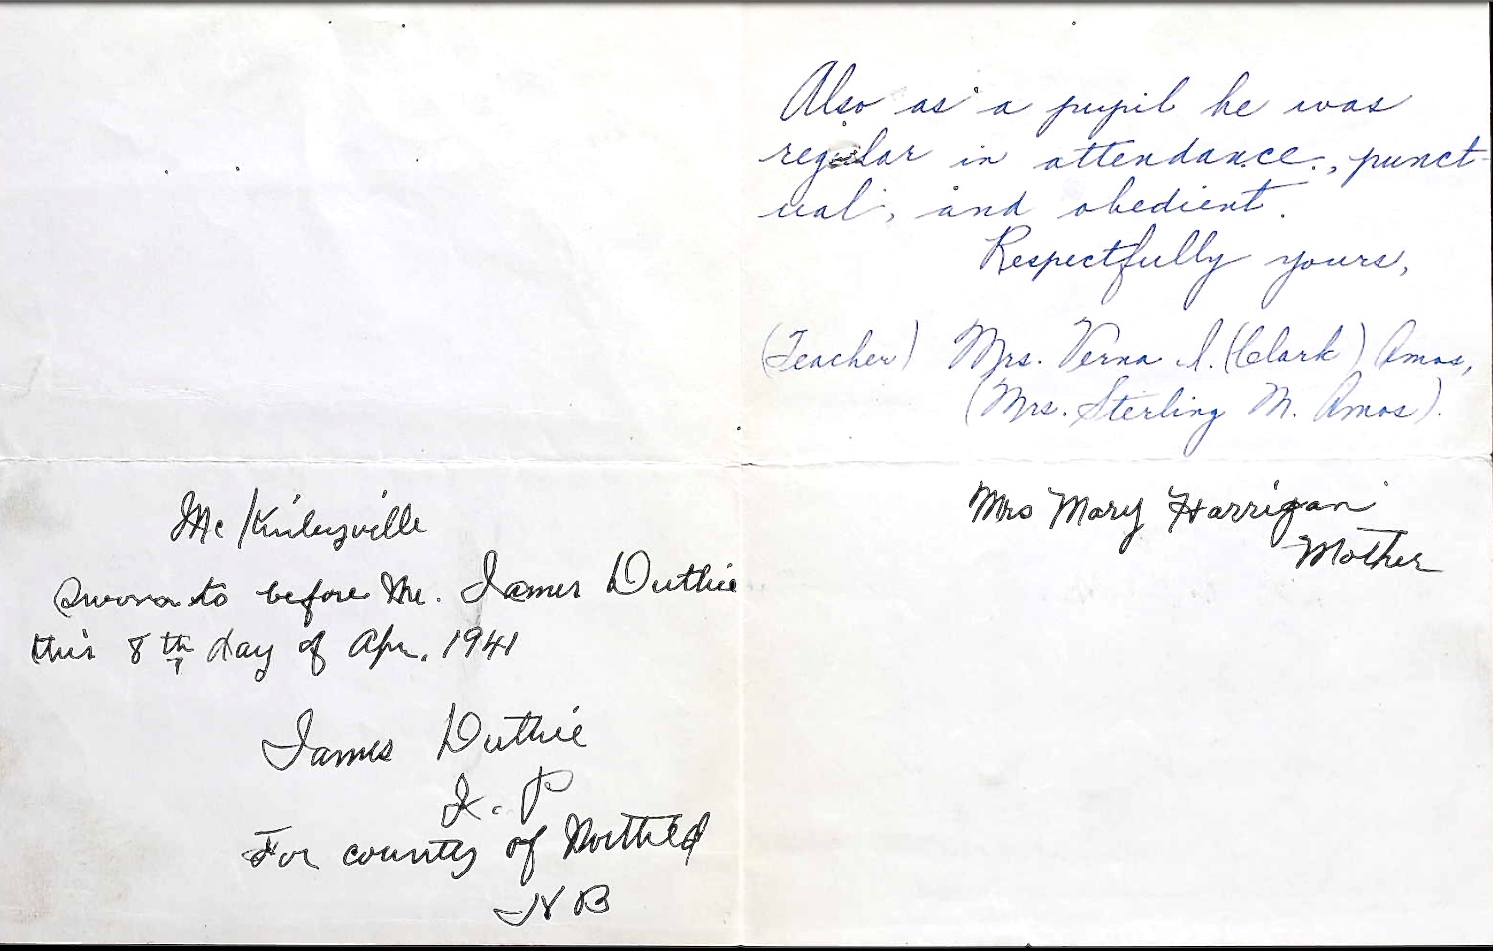 Also as a pupil he was
regular in attendance, punct-
ual, and obedient.
Respectfully yours,
(Teacher) Mrs. Verna I. (Clark) Amos,
(Mrs. Sterling M. Amos).
Mrs Mary Harrigan
Mother
McKinleyville
Sworn to before Me. James Duthie
this 8th day of Apr. 1941
James Duthie
J. P
For county of Northld
N B